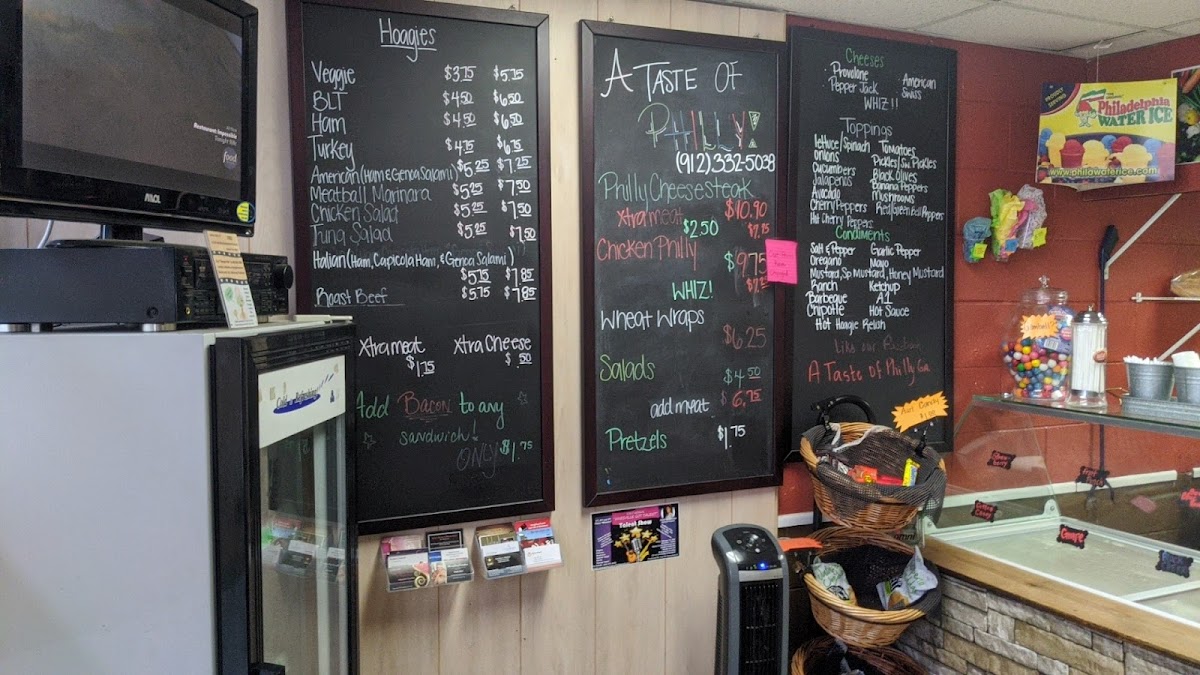 Hoagies
Veggie $3.75 $5.75
BLT $4.50 $6.50
Ham $4.50 $6.50
Turkey $4.75 $6.75
American (Ham & Genoa Salami) $5.25 $7.25
Meatball Marinara $5.25 $7.50
Chicken Salad $5.25 $7.50
Tuna Salad $5.25 $7.50
Italian (Ham, Capicola Ham, & Genoa Salami)
$5.75 $7.85
Roast Beef $5.75 $7.85
Xtra meat Xtra Cheese
$1.75 $.50
Add Bacon to any
sandwich!
ONLY $1.75
A TASTE OF
PHILLY!
(912)332-5038
Philly Cheesesteak
$10.90
Xtra meat
$2.50
Chicken Philly
$9.75
WHIZ!
Wheat Wraps
$6.25
Salads
$4.50
add meat $6.75
Pretzels $1.75
Cheeses
Provolone American
Pepper Jack Swiss
WHIZ!!
Toppings
lettuce/Spinach Tomatoes
Onions Pickles/
Cucumbers Black Olives
Jalapenos Banana Peppers
Avocado Mushrooms
Cherry Peppers Red/Green Bell Peppers
Hot Cherry Peppers
Condiments
Salt & Pepper Garlic Pepper
Oregano Mayo
Mustard, Sp Mustard, Honey Mustard
Ranch Ketchup
Barbeque A1
Chipotle Hot Sauce
Hot Hoagie Relish
Like our Facebook
A Taste Of Philly Ga
PROUDLY
SERVING
Philadelphia
WATER ICE
www.philawaterice.com
Restaurant: Impossible
food
AOC
Talent Show